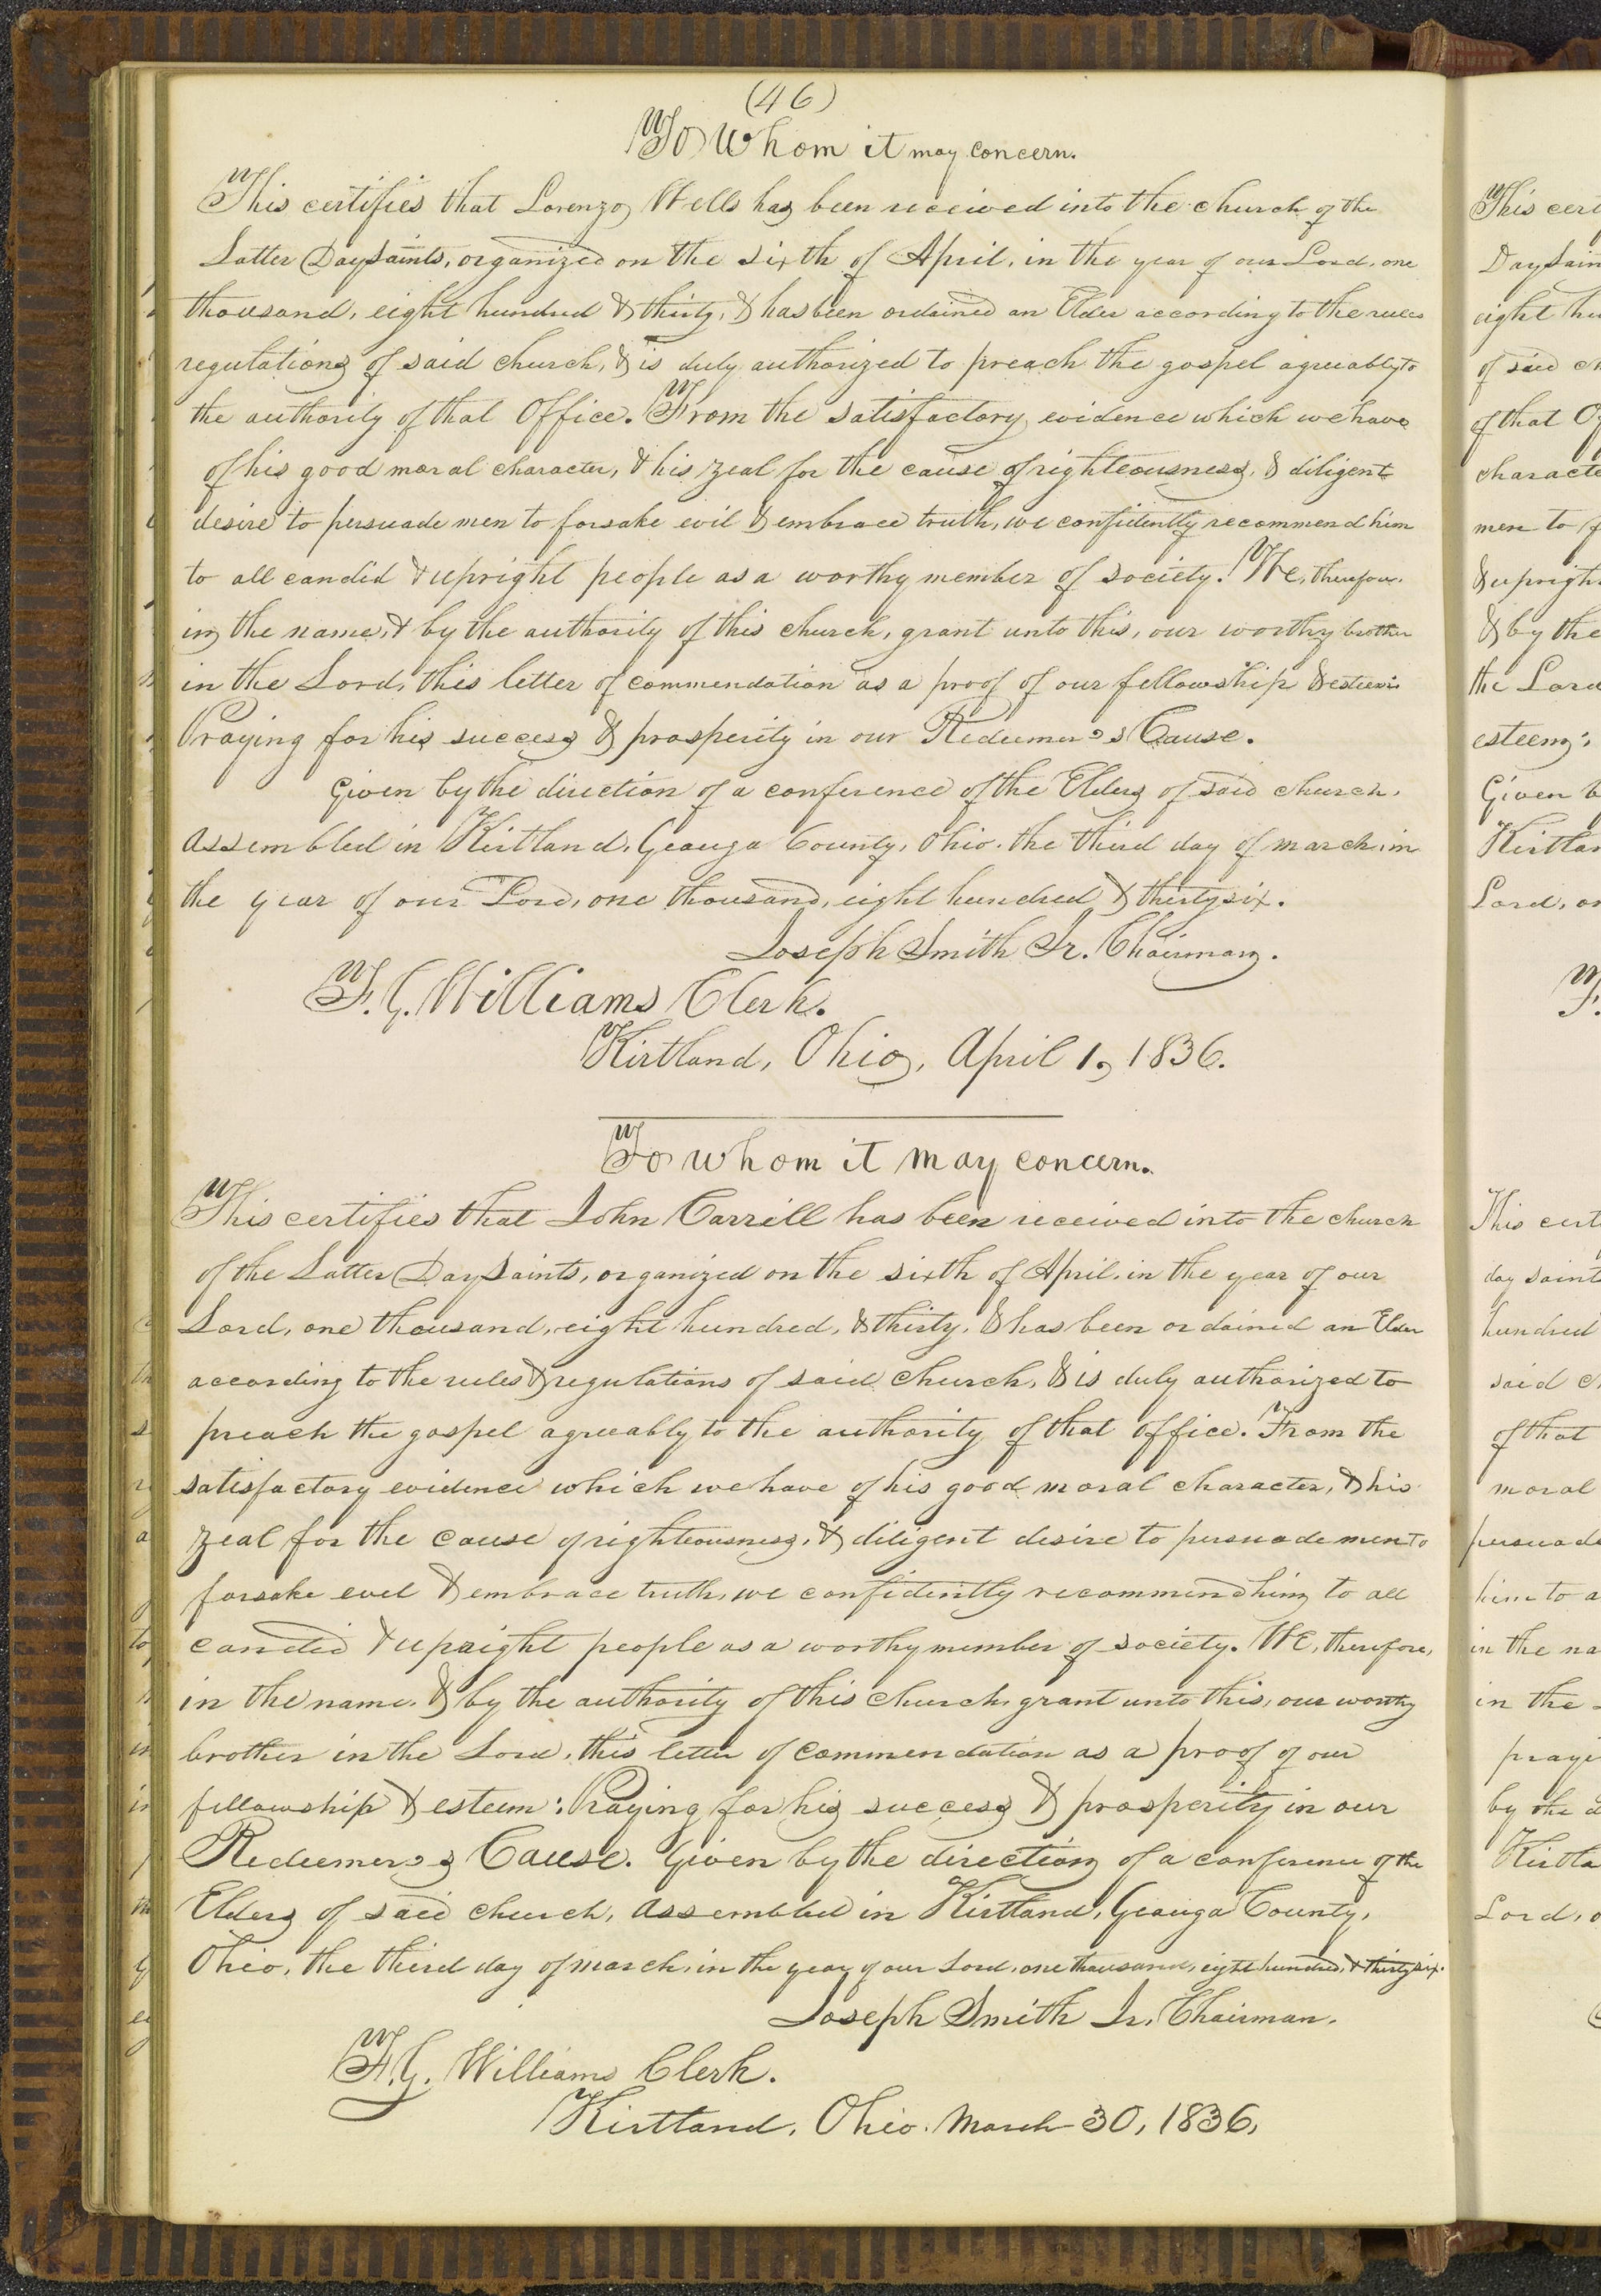 (46)
To Whom it may concern.
This certifies that Lorenzo Wells has been received into the church of the
Latter Day Saints, organized on the sixth of April, in the year of our Lord, one
thousand, eight hundred & thirty, & has been ordained an Elder according to the rules
regulations of said church, & is duly authorized to preach the gospel agreeably to
the authority of that Office. From the satisfactory evidence which we have
of his good moral character, & his zeal for the cause of righteousness, & diligent
desire to persuade men to forsake evil & embrace truth, we confidently recommend him
to all candid & upright people as a worthy member of society. We, therefore.
in the name, & by the authority of this church, grant unto this, our worthy brother
in the Lord, this letter of commendation as a proof of our fellowship & esteem:
Praying for his success & prosperity in our Redeemer's Cause.
Given by the direction of a conference of the Elders of said church.
Assembled in Kirtland, Geauga County, Ohio. the third day of march, in
the year of our Lord, one thousand, eight hundred & thirty six.
Joseph Smith Jr. Chairman.
F. G. Williams Clerk.
Kirtland, Ohio, April 1, 1836.
To whom it may concern.
This certifies that John Carrill has been received into the church
of the Latter Day Saints, organized on the sixth of April, in the year of our
Lord, one thousand, eight hundred, & thirty, & has been ordained an Elder
according to the rules & regulations of said church, & is duly authorized to
preach the gospel agreeably to the authority of that office. From the
satisfactory evidence which we have of his good moral character, & his
zeal for the cause of righteousness, & diligent desire to persuade men to
forsake evel & embrace truth, we confidently recommend him to all
candid & upright people as a worthy member of society. We, therefore,
in the name, & by the authority of this church, grant unto this, our worthy
brother in the Lord, this letter of commendation as a proof of our
fellowship & esteem: Praying for his success & prosperity in our
Redeemer's Cause. Given by the direction of a conference of the
Elders of said church, assembled in Kirtland, Geauga County,
Ohio, the third day of march, in the year of our Lord, one thousand, eight hundred, & thirty six.
Joseph Smith Jr. Chairman.
F. G. Williams Clerk.
Kirtland, Ohio. March 30, 1836,
This
Day
eight
of said
of that
men to
& by the
the Lord
esteem:
Given
Lord,
This
hundred
said
of that
moral
him to
in the
in the
by the
Lord,